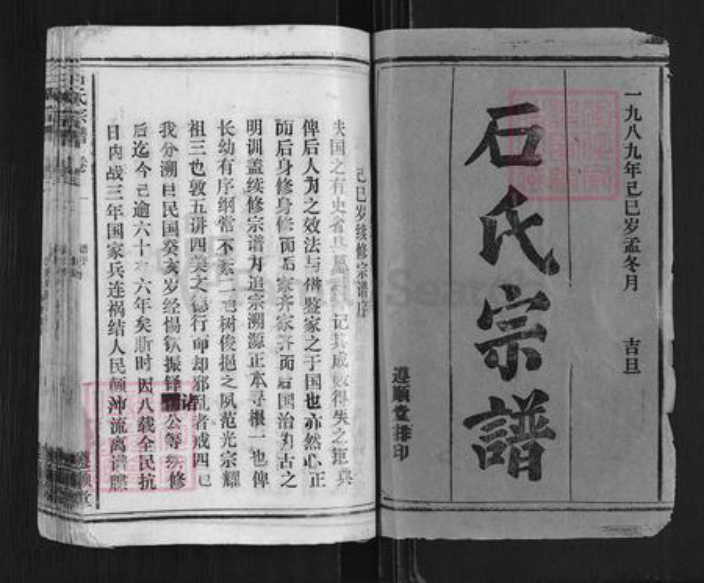 一九八九年己巳岁孟冬月 吉旦
石氏宗譜
遵顺堂排印
己巳岁续修宗谱序
夫国之有史省 记其成败得失之 典
俾后人为之效法与借鉴家之于国也亦然心正
而后身修身修而后家齐家齐而后国治为古之
明训盖续修宗谱为追宗溯源正本寻根一也俾
长幼有序纲常不紊二也树俊挹之夙范光宗耀
祖三也敦五讲四美之德行 却邪乱者戒四也
我分溯自民国癸亥岁经惕钦振铎 诸公等续修
后迄今已逾六十 六年矣斯时因八载全民抗
日内战三年国家兵连祸结人民颠沛流离谱牒
石氏宗谱 卷
遵顺堂